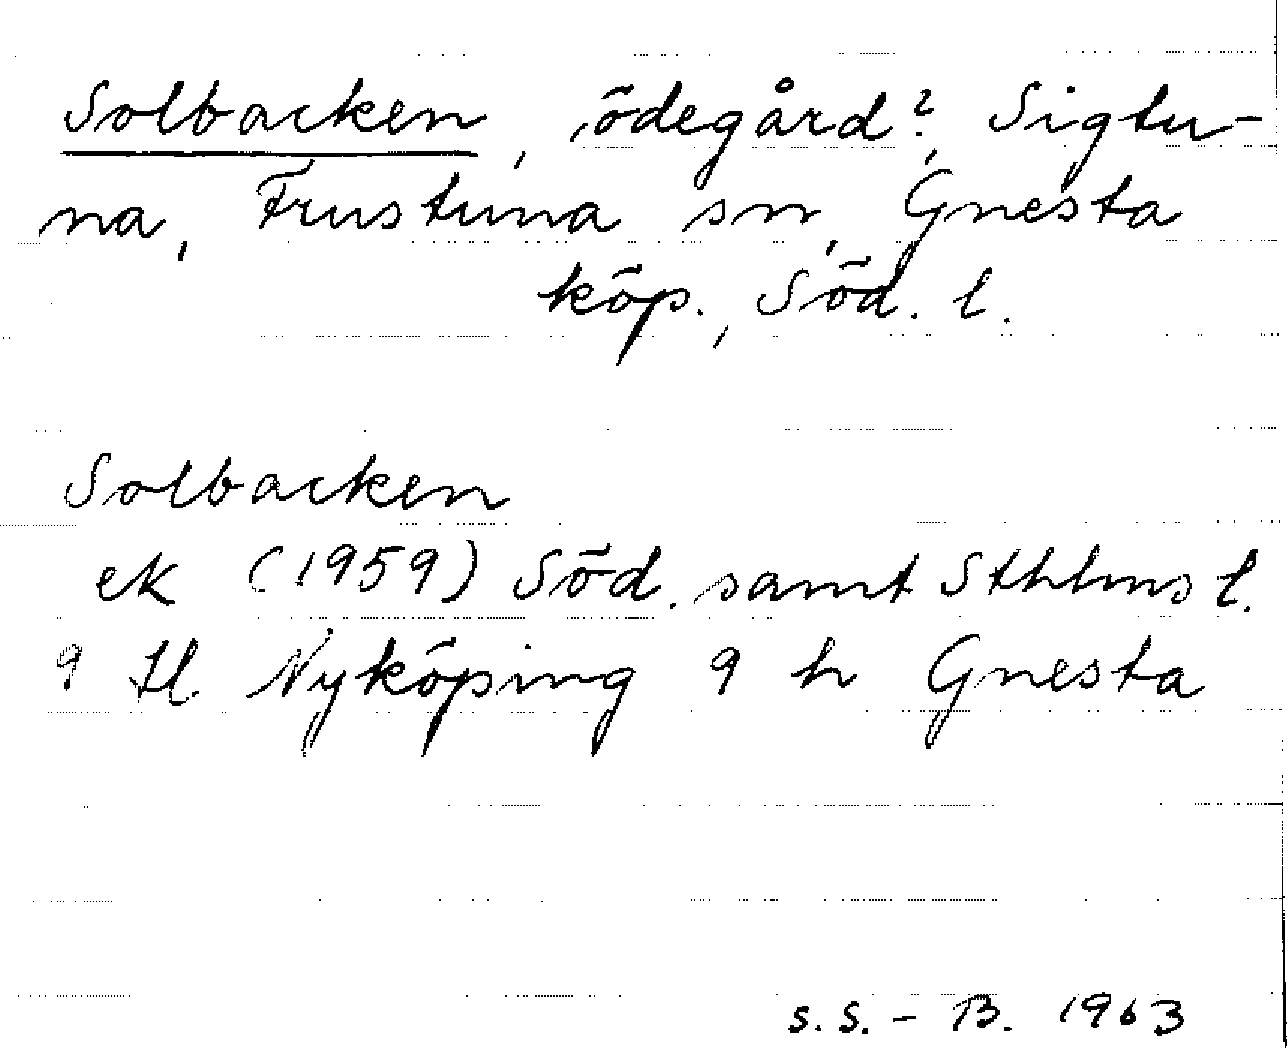 Solbacken, ödegård?, Sigtu-
na, Frustuna sn, Gnesta
köp., Söd. l.
Solbacken
ek (1959) Söd. samt Sthlms l.
9 H Nyköping 9 h Gnesta
S.S. - B. 1963